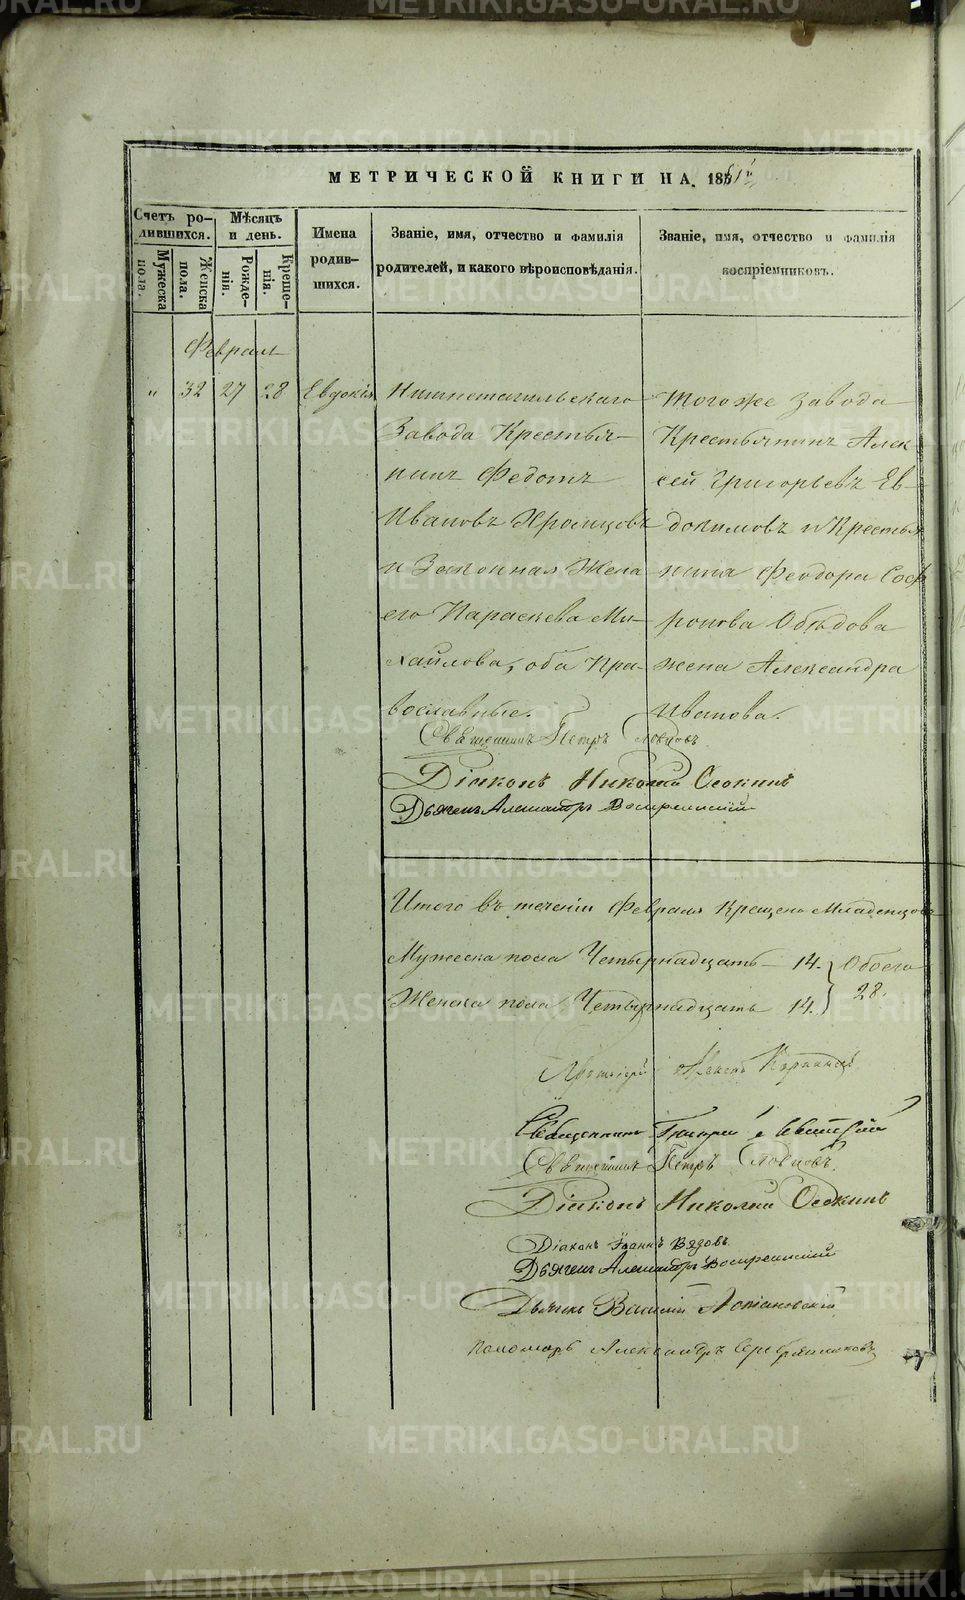 МЕТРИЧЕСКОЙ КНИГИ НА 18
Счетъ ро-
дившихся.
Мужеска
пола.
Женска
пола.
Мѣсяцъ
и день.
Рожде-
нія.
Креще-
нія.
Имена
родив-
шихся.
Званіе, имя, отчество и фамилія
родителей, и какого вѣроисповѣданія.
Званіе, имя, отчество и фамилія
воспріемниковъ.
Февраль
" 32 27 28 Евдокія
Нижнетагильскаго
Завода Крестья-
нинъ Федотъ
Ивановъ
и Законная Жена
его Параскева Ми-
хайлова, оба Пра-
вославные.
Тогоже Завода
Крестьянинъ Алек
сей Григорьевъ Ев-
докимовъ и Крестья
нина Феодора Соф
ронова Обѣдова
жена Александра
Иванова.
Священникъ Петръ Словцовъ
Діаконъ Николай Осокинъ
Дьячекъ Александръ Воскресенскій
Итого въ теченіи Февраля Крещено Младенцовъ
Мужеска пола Четырнадцать – 14. Обоего
Женска пола Четырнадцать 14. 28.
Протоіерей
Священникъ
Священникъ Петръ Словцовъ
Діаконъ Николай Осокинъ
Діаконъ Іоаннъ Вядовъ
Дьячекъ Александръ Воскресенскій
Дьячекъ Василій
Пономарь Александръ Серебрянниковъ
METRIKI.GASO-URAL.RU